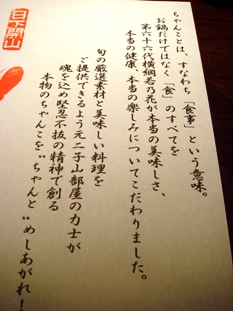 ちゃんことは、すなわち「食事」という意味。
お鍋だけではなく「食」のすべてを
第六十六代横綱若乃花が本当の美味しさ、
本当の健康、本当の楽しみについてこだわりました。
旬の厳選素材と美味しい料理を
ご提供できるよう元二子山部屋の力士が
魂を込め堅忍不抜の精神で創る
本物のちゃんこを"ちゃんと"めしあがれ!
日下開山